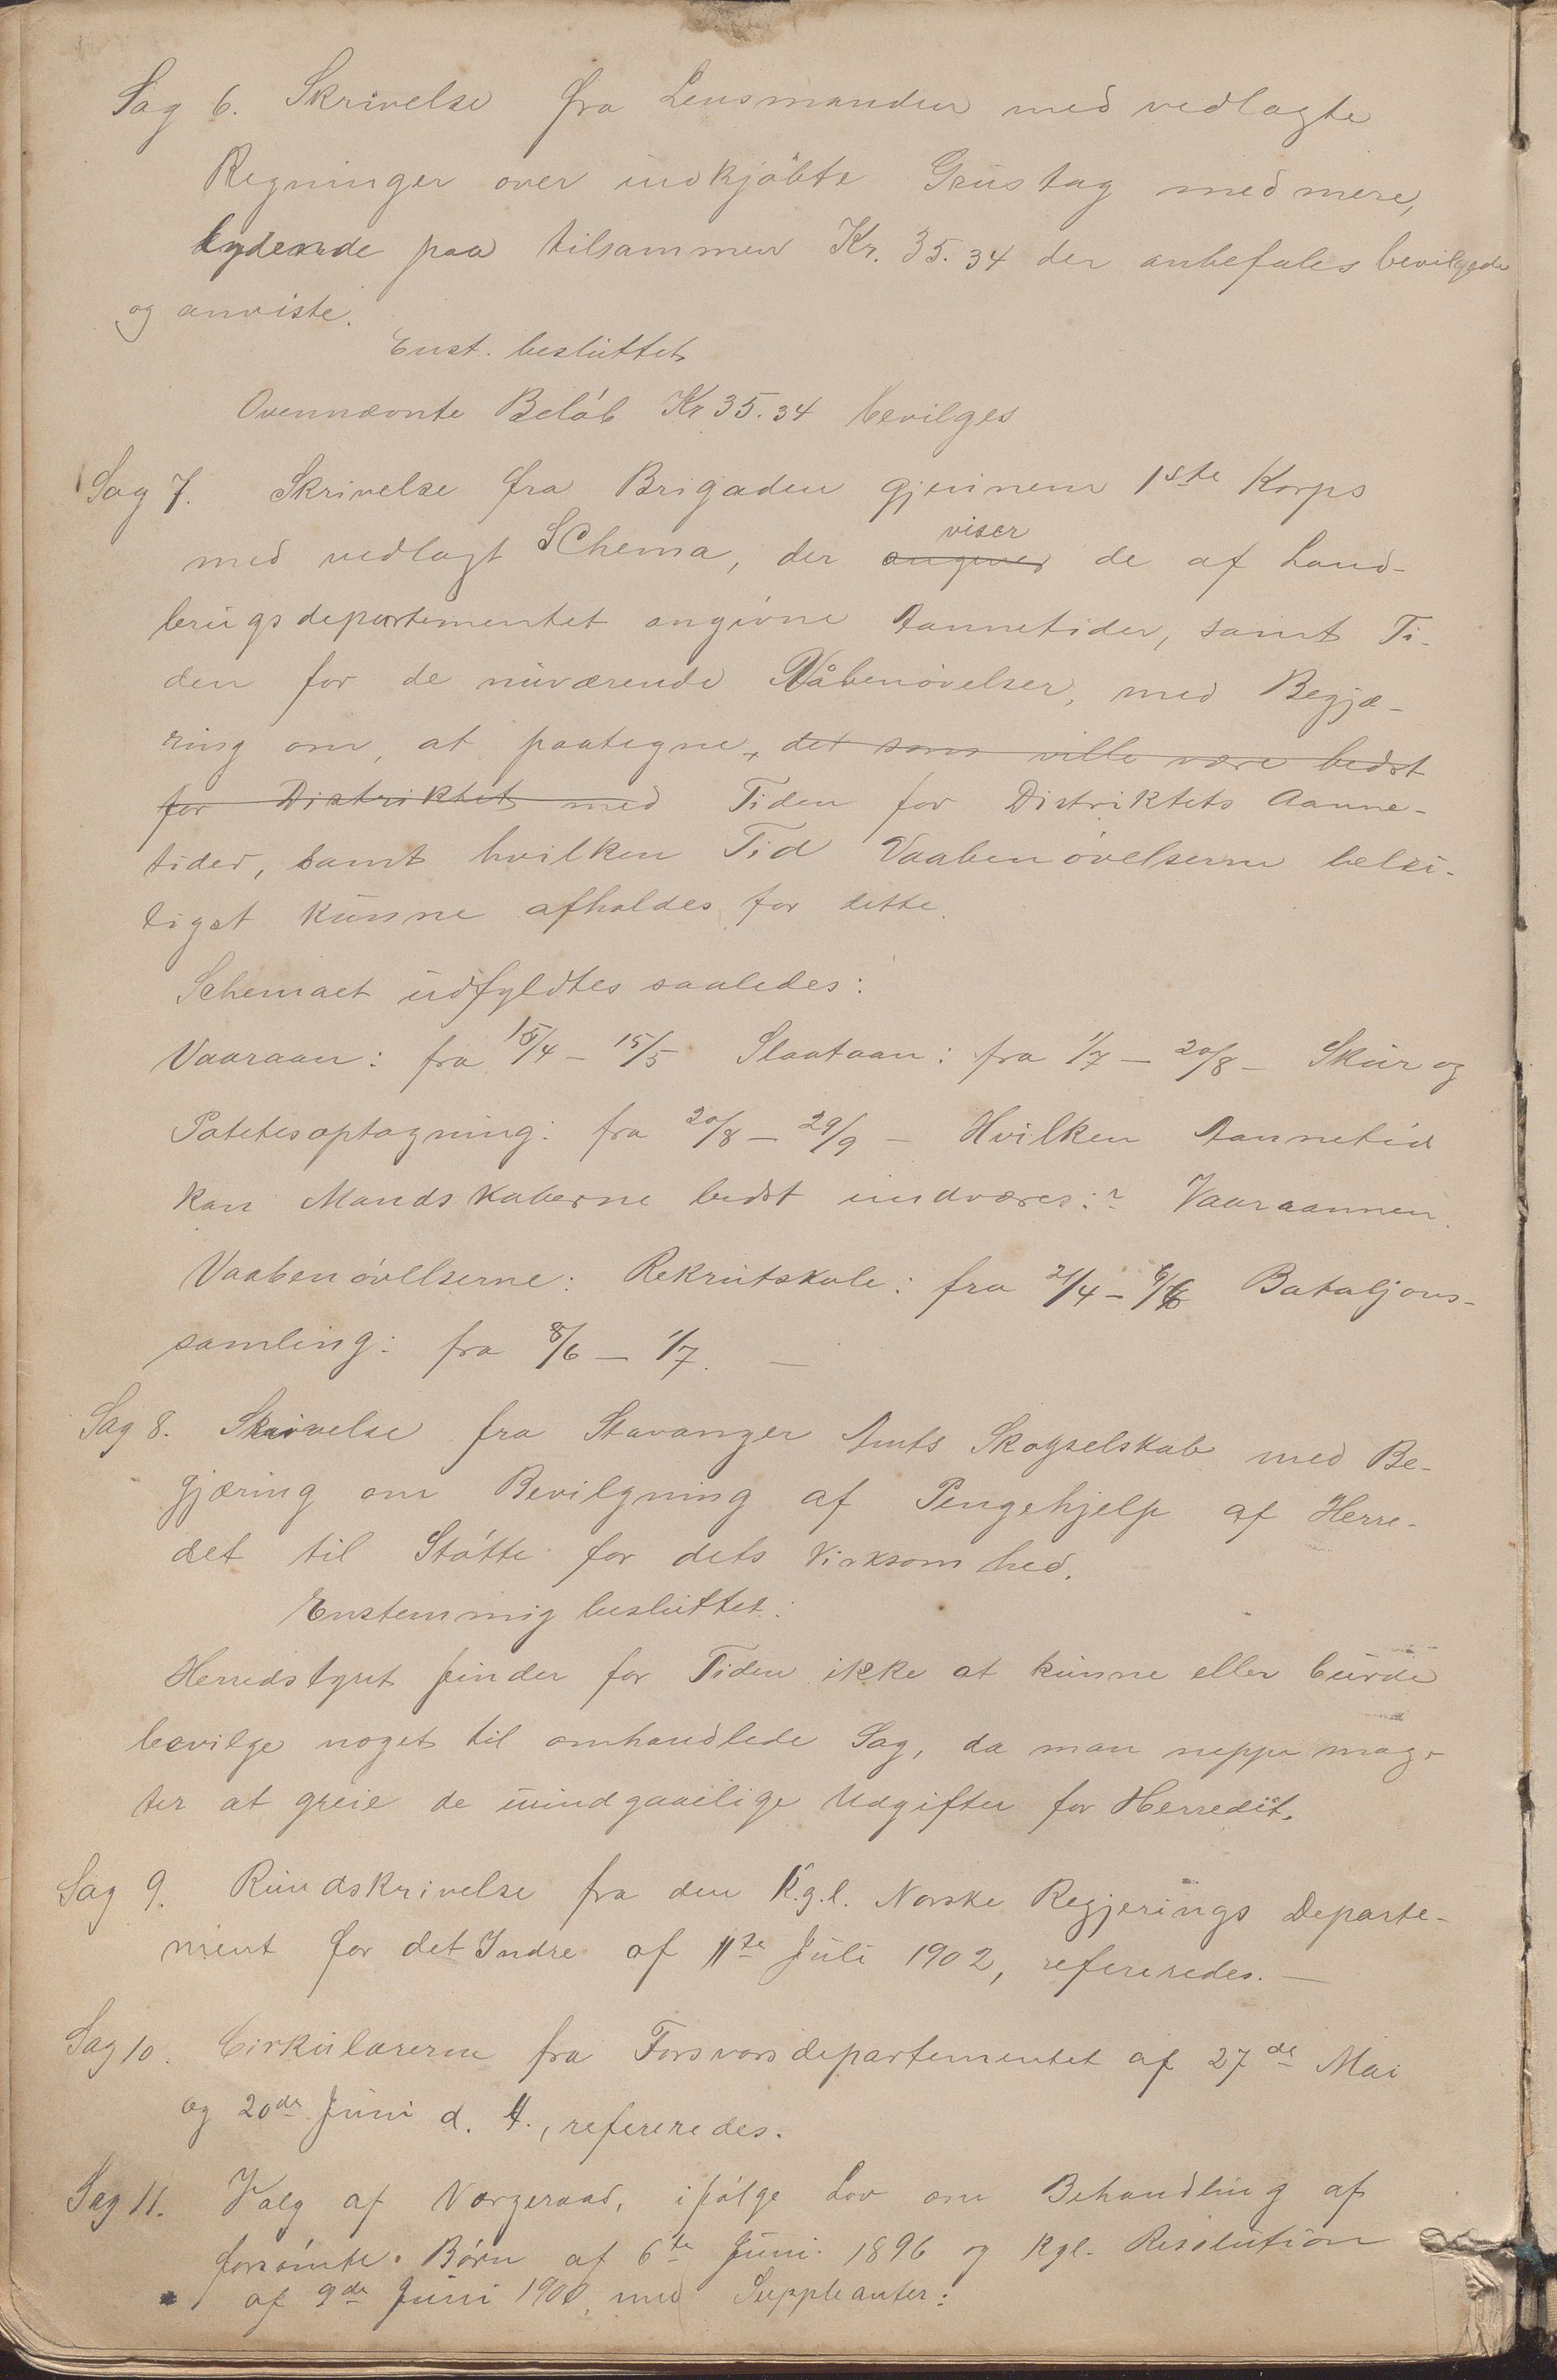 Sag 6. Skrivelse fra Lensmanden med vedlagte
Regninger over indkjöbte Grustag med mere,
lydende paa tilsammen Kr. 35.34 der anbefales bevilgede
og anviste.
Enst. besluttet
Ovennævnte Beløb Kr 35.34 bevilges
Sag 7. Skrivelse fra Brigaden gjennem 1ste Korps
med vedlagt Schema, der angiver viser de af Land-
brugsdepartementet angivne Aannetider, samt Ti-
den for de nuværende Våbenøvelser, med Begjæ-
ring om, at paategne, det som ville være bedst
for Distriktet med Tiden for Distriktets Aanne-
tider, samt hvilken Tid Vaabenøvelserne belei-
ligst kunne afholdes for dette.
Schemaet udfyldtes saaledes:
Vaaraan: fra 15/4 - 15/5 Slaataan: fra 1/7 - 20/8 - Skur og
Potetesoptagning: fra 20/8 - 29/9 - Hvilken Aannetid
kan Mandskaberne bedst undværes:? Vaaraannen.
Vaabenøvelserne: Rekrutskole: fra 21/4 - 6/6 Bataljons-
samling: fra 8/6 - 1/7. -
Sag 8. Skrivelse fra Stavanger Amts Skogselskab med Be-
gjæring om Bevilgning af Pengehjelp af Herre-
det til Støtte for dets Virksomhed.
Enstemmig besluttet:
Herredstyret finder for Tiden ikke at kunne eller burde
bevilge noget til omhandlede Sag, da man neppe mag-
ter at greie de uundgaaelige Udgifter for Herredet.
Sag 9. Rundskrivelse fra den Kgl. Norske Regjerings Departe-
ment for det Indre af 11te Juli 1902, refereredes. -
Sag 10. Cirkulærerne fra Forsvarsdepartementet af 27de Mai
og 20de Juni d. A., refereredes.
Sag 11. Valg af Værgeraad, ifølge Lov om Behandling af
forsømte Børn af 6te Juni 1896 og Kgl. Resolution
af 9de Juni 1900, med Suppleanter: